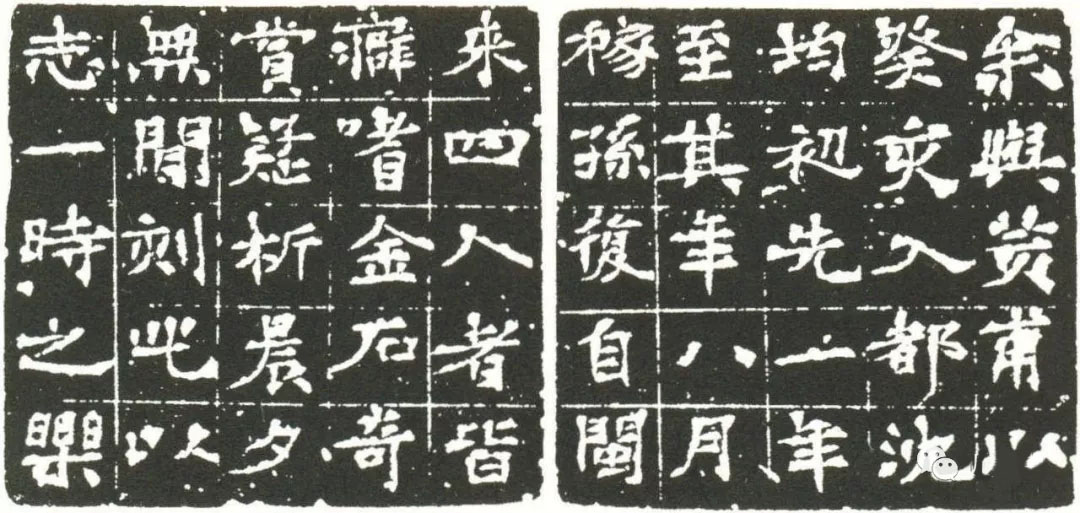 余與荄甫以
癸亥入都沈
均初先一年
至其年八月
稼孫復自閩
來四人者皆
癖嗜金石奇
賞疑析晨夕
無閒刻此以
志一時之樂